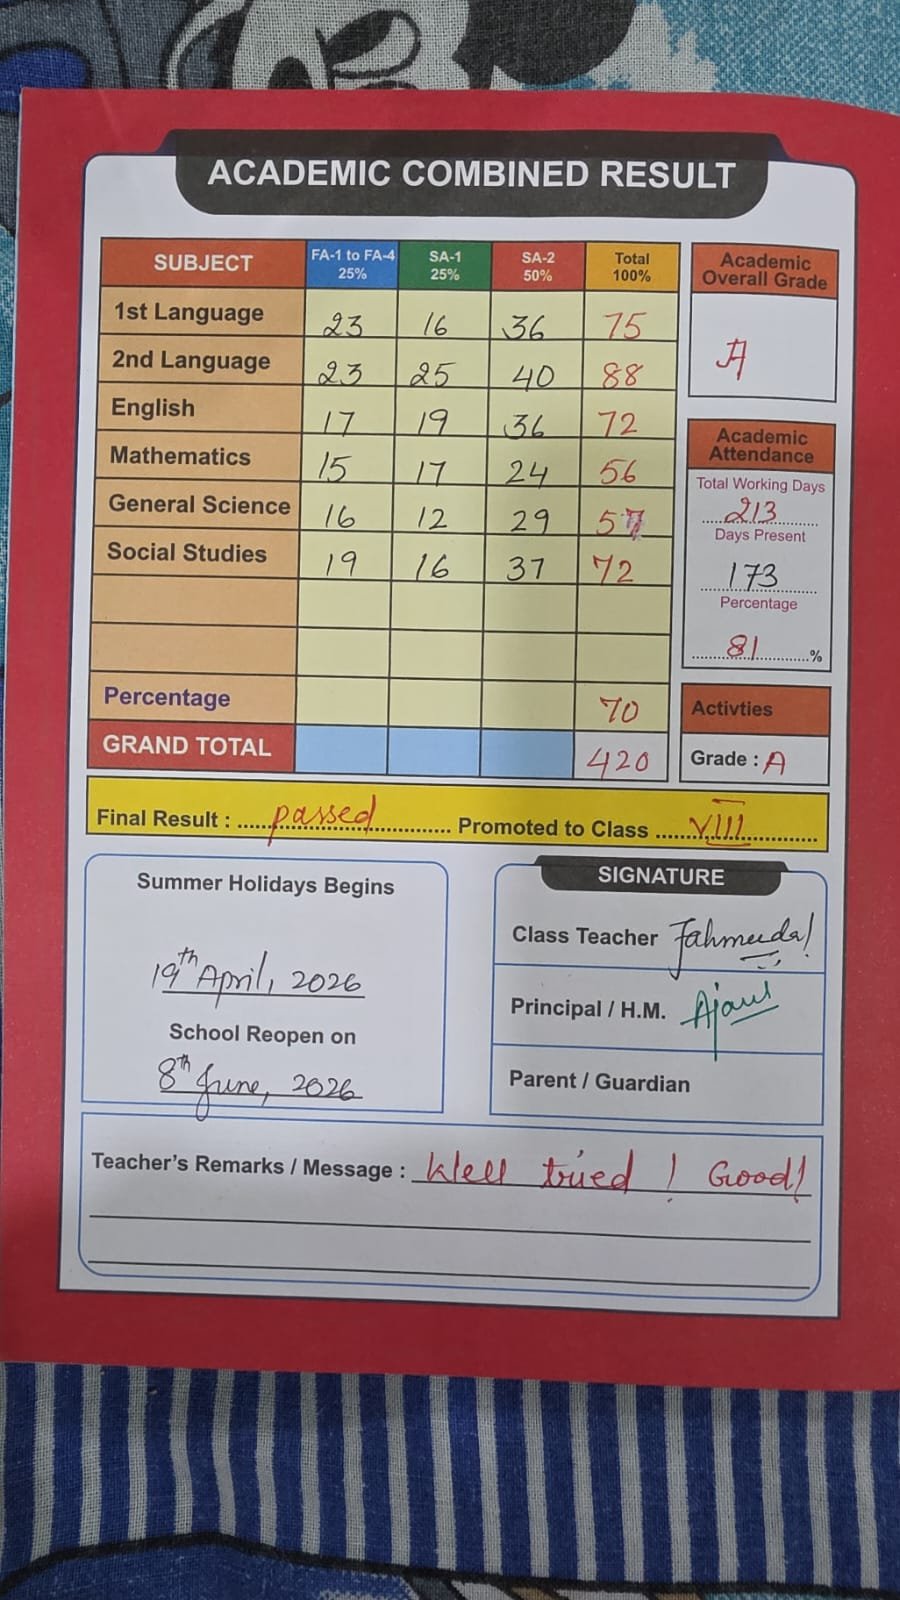 ACADEMIC COMBINED RESULT
SUBJECT FA-1 to FA-4 25% SA-1 25% SA-2 50% Total 100%
1st Language 23 16 36 75
2nd Language 23 25 40 88
English 17 19 36 72
Mathematics 15 17 24 56
General Science 16 12 29 57
Social Studies 19 16 37 72
Percentage 70
GRAND TOTAL 420
Academic
Overall Grade
A
Academic
Attendance
Total Working Days
213
Days Present
173
Percentage
81 %
Activties
Grade : A
Final Result : passed Promoted to Class VIII
Summer Holidays Begins
19th April, 2026
School Reopen on
8th June, 2026
SIGNATURE
Class Teacher Fahmeeda!
Principal / H.M.
Parent / Guardian
Teacher's Remarks / Message : Well tried ! Good!